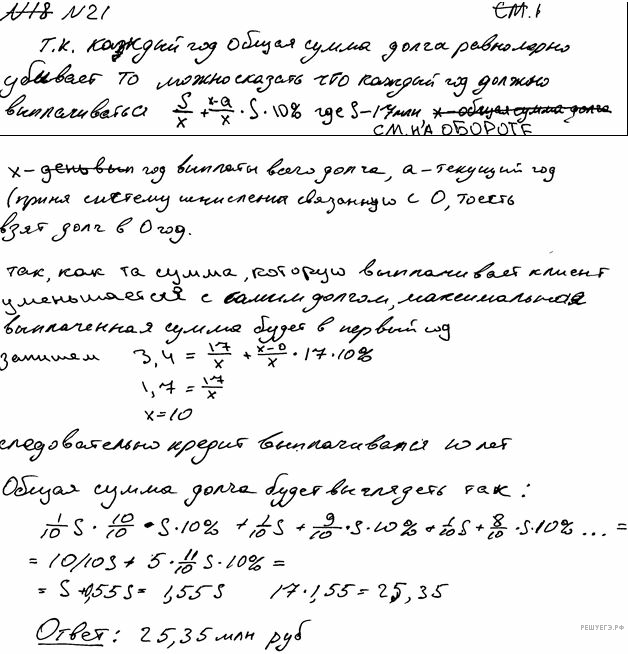 №18 №21 СМ.1
Т.К. каждый год общая сумма долга равномерно
убывает то можно сказать что каждый год должно
выплачиваться S/x + x-a/x · S · 10% где S-17млн, x - общая сумма долга
СМ. НА ОБОРОТЕ
x - день вып год выплаты всего долга, a - текущий год
(приня систему исчисления связанную с 0, тоесть
взят долг в 0 год.
так, как та сумма, которую выплачивает клиент
уменьшается с самим долгом, максимальная
выплаченная сумма будет в первый год
запишем 3,4 = 17/x + x-0/x · 17 · 10%
1,7 = 17/x
x = 10
следовательно кредит выплачивался 10 лет
Общая сумма долга будет выглядеть так:
1/10 S · 10/10 · S · 10% + 1/10 S + 9/10 · S · 10% + 1/10 S + 8/10 · S · 10% ... =
= 10/10 S + 5 · 11/10 S · 10% =
= S + 0,55S = 1,55S 17 · 1,55 = 25,35
Ответ: 25,35 млн руб
РЕШУЕГЭ.РФ